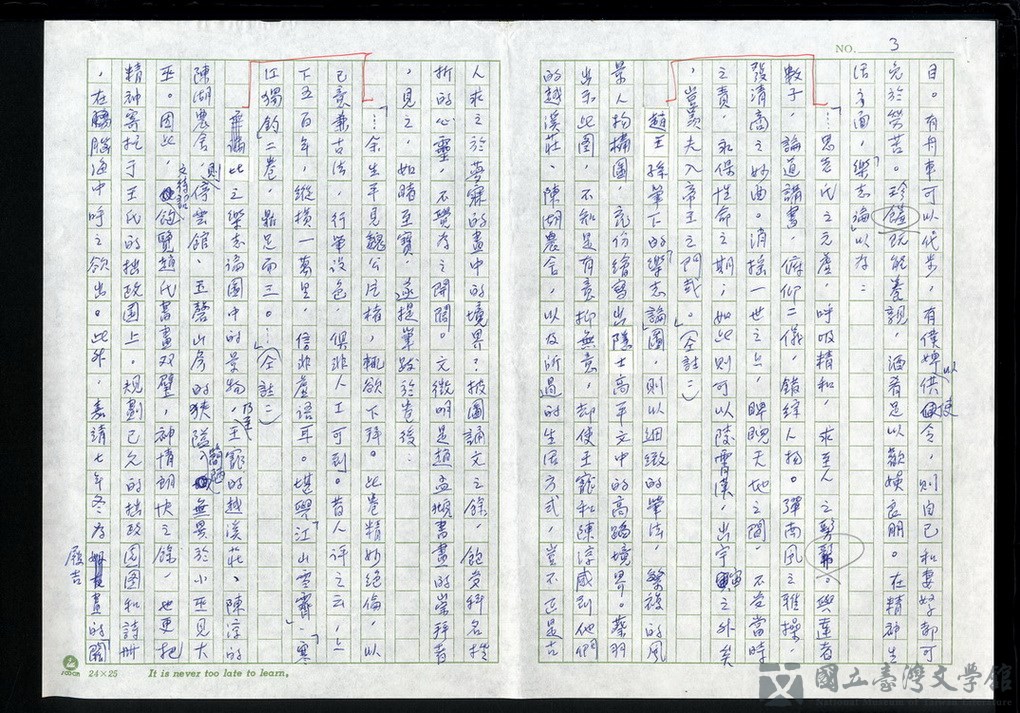 NO. 3
目。有舟車可以代步，有僕婢以供使令，則自己和妻孥都可
免於勞苦。珍饈既能養親，酒肴足以歡娛良朋。在精神生
活方面，「樂志論」以為：
「…思老氏之玄虛，呼吸精和，求至人之彷彿。與達者
數子，論道講書，俯仰二儀，錯綜人物。彈南風之雅操，
發清商之妙曲。消搖一世之上，睥睨天地之間。不受當時
之責，永保性命之期；如此則可以陵霄漢，出宇宙之外矣
，豈羨夫入帝王之門哉。」（仝註二）
趙王孫筆下的「樂志論圖」，則以細緻的筆法，繁複的風
景人物構圖，充份繪寫出隱士高平文中的高蹈境界。蔡羽
出示此圖，不知是有意抑無意，卻使王寵和陳淳感到他們
的越溪莊、陳湖農舍，以及所過的生活方式，豈不正是古
人求之於夢寐的畫中的境界？披圖誦文之餘，飽受科名挫
折的心靈，不覺為之開闊。文徵明是趙孟頫書畫的崇拜者
，見之，如睹至寶，遂提筆跋於卷後：
「…余生平見魏公片楮，輒欲下拜。此卷精妙絕倫，以
己意兼古法，行筆設色，俱非人工可到。昔人評之云，上
下五百年，縱橫一萬里，信非虛語耳。堪與「江山雪霽」、「寒
江獨釣」二卷，鼎足而三。…」（仝註二）
弄論此之樂志論圖中的景物，乃至王寵的越溪莊、陳淳的
陳湖農舍，則文待詔停雲館、玉磬山房的狹隘簡陋無異於小巫見大
巫。因此，飽覽趙氏書畫双璧，神情朗快之餘，也更把
精神寄托于王氏的拙政園上。規劃已久的拙政園圖和詩冊
，在腦海中呼之欲出。此外，嘉靖七年冬為履吉畫的關
24×25
It is never too late to learn.
國立臺灣文學館
National Museum of Taiwan Literature